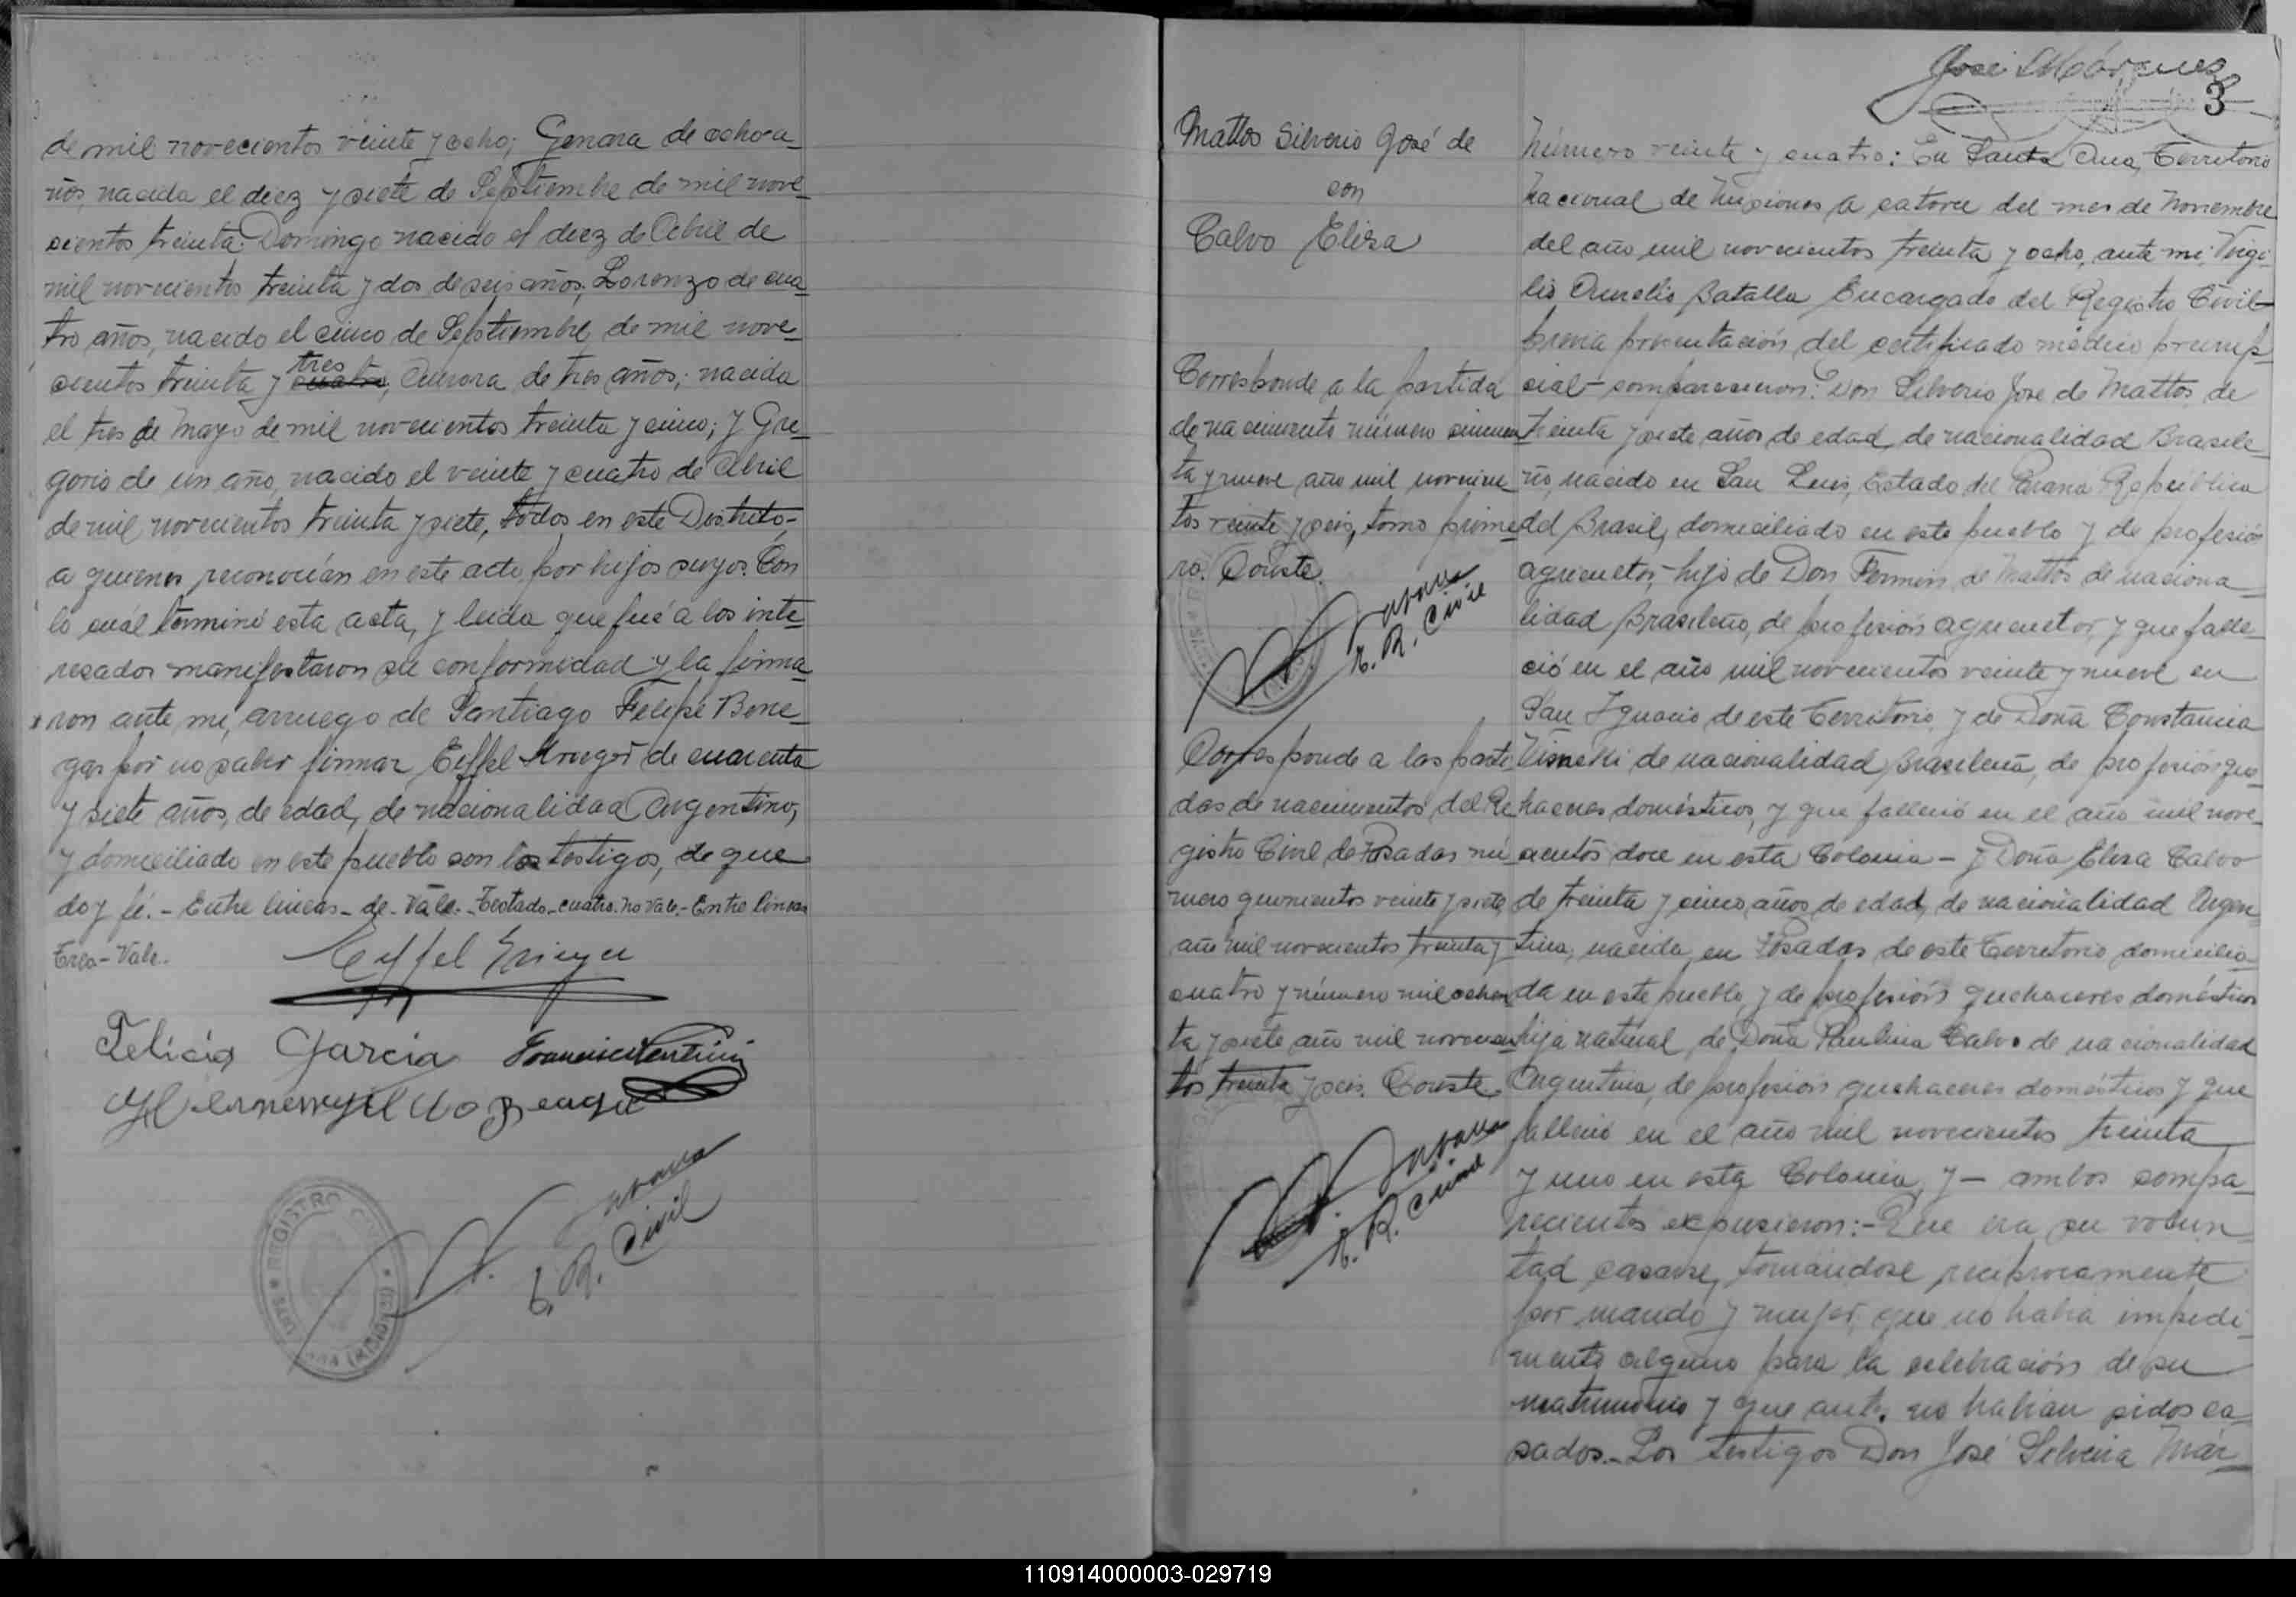 de mil novecientos veinte y ocho; Genara de ocho a-
ños, nacida el diez y siete de Septiembre de mil nove-
cientos treinta; Domingo nacido el diez de Abril de
mil novecientos treinta y dos de seis años; Lorenzo de cua-
tro años, nacido el cinco de Septiembre de mil nove-
tres
cientos treinta y cuatro, Aurora de tres años; nacida
el tres de Mayo de mil novecientos treinta y cinco; y Gre-
gorio de un año, nacido el veinte y cuatro de Abril
de mil novecientos treinta y siete, todos en este Distrito-
a quienes reconocían en este acto por hijos suyos. Con
lo cuál terminé esta acta, y leida que fué a los inte-
resados manifestaron su conformidad y la firma-
ron ante mi, arruego de Santiago Felipe Bene-
gas por no saber firmar Eiffel Krieger de cuarenta
y siete años, de edad, de nacionalidad Argentino,
y domiciliado en este pueblo con los testigos, de que
doy fé.- Entre lineas- de- Vale.- Testado- cuatro. No Vale.- Entre lineas
tres- Vale.
Eiffel Krieger
Felicia Garcia
E. R. Civil
REGISTRO CIVIL
José Márquez
3
Mattos Silverio José de
con
Calvo Elisa
Corresponde a la partida
de nacimiento número cincuen
ta y nueve año mil novecien
tos veinte y seis, tomo prime
ro. Conste.
E. R. Civil
Corresponde a las parti
das de nacimientos del Re
gistro Civil de Posadas nú
mero quinientos veinte y siete
año mil novecientos treinta y
cuatro y número mil ochen
ta y siete año mil novecien
tos treinta y seis. Conste.
E. R. Civil
Número veinte y cuatro: En Santa Ana, Territorio
Nacional de Misiones a catorce del mes de Noviembre
del año mil novecientos treinta y ocho, ante mi, Virgi-
lio Aurelio Batalla Encargado del Registro Civil-
previa presentación del certificado médico prenup-
cial- comparecieron: Don Silverio José de Mattos de
treinta y siete años de edad, de nacionalidad Brasile-
ño, nacido en San Luis, Estado del Paraná República
del Brasil, domiciliado en este pueblo y de profesión
agricultor, hijo de Don Fermin de Mattos de naciona-
lidad Brasileño, de profesión agricultor y que falle-
ció en el año mil novecientos veinte y nueve en
San Ignacio de este Territorio, y de Doña Constancia
de nacionalidad Brasileña, de profesión que-
haceres domésticos, y que falleció en el año mil nove-
cientos doce en esta Colonia - y Doña Elisa Calvo
de treinta y cinco años de edad, de nacionalidad Argen-
tina, nacida en Posadas de este Territorio domicilia-
da en este pueblo, y de profesión quehaceres domésticos
hija natural de Doña Paulina Calvo de nacionalidad
Argentina, de profesión quehaceres domésticos y que
falleció en el año mil novecientos treinta
y uno en esta Colonia, y - ambos compa-
recientes expusieron:- Que era su volun-
tad casarse, tomándose reciprocamente
por marido y mujer, que no había impedi-
mento alguno para la celebración de su
matrimonio y que antes no habían sidos ca-
sados.- Los testigos Don José Silveira Már-
110914000003-029719